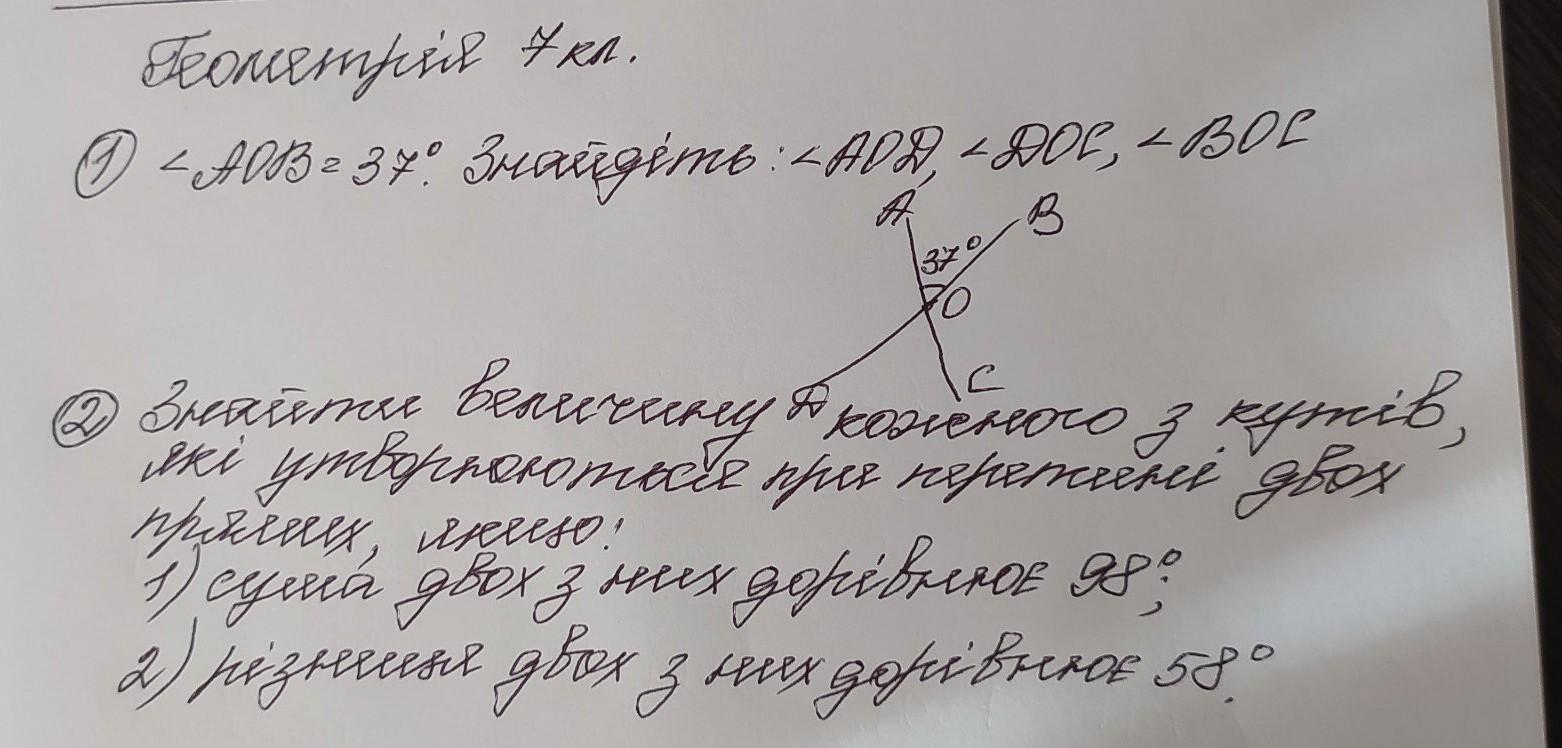 Геометрія 7 кл.
① <AOB = 37°. Знайдіть: <AOD, <DOC, <BOC
A B
37°
O
C
D
② Знайти величину кожного з кутів,
які утворюються при перетині двох
прямих, якщо:
1) сума двох з них дорівнює 98°;
2) різниця двох з них дорівнює 58°.